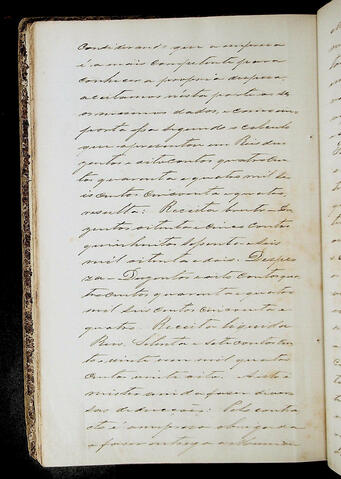 considerando que a empresa
é a mais competente para
conhecer a propria despeza,
acceitamos nésta parte os se-
os dados, e
segundo o calculo
que apresentou em Reis du-
zentos e oito contos quatro cen-
tos quarenta e quatro mil se-
is centos cincoenta e quatro,
resulta: Receita bruta - du-
zentos oitenta e cinco contos
quinhentos setenta e seis
mil oitenta e dois. Despe-
za - Duzentos e oito contos qua-
tro centos quarenta e quatro
mil seis centos cincoenta e
quatro. Receita liquida
Reis. Setenta e sete contos cen-
to e trinta e um mil quatro
centos vinte oito. A este
mister ainda fazer diver-
sas deducções: Pelo contra-
cto é a empresa obrigada
a fazer entrega a